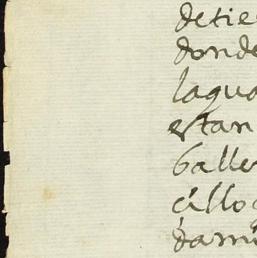 detie
donde
lagua
estan
balle
cillo